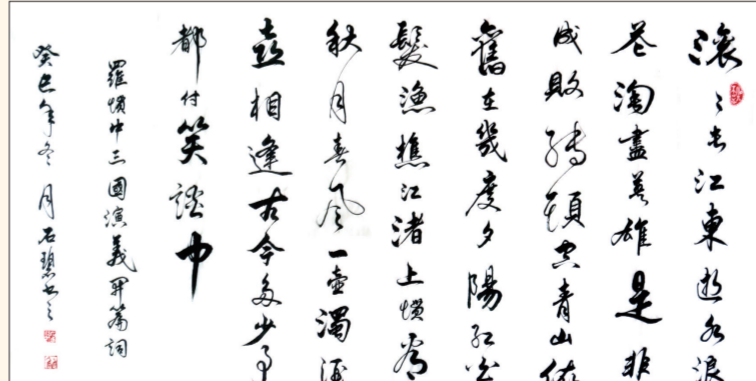 滚々長江東逝水浪
花淘盡英雄是非
成敗轉頭空青山依
舊在幾度夕陽紅白
髮漁樵江渚上慣看
秋月春風一壺濁酒
喜相逢古今多少事
都付笑談中
羅慣中三國演義開篇詞
癸巳年冬月石碧書之